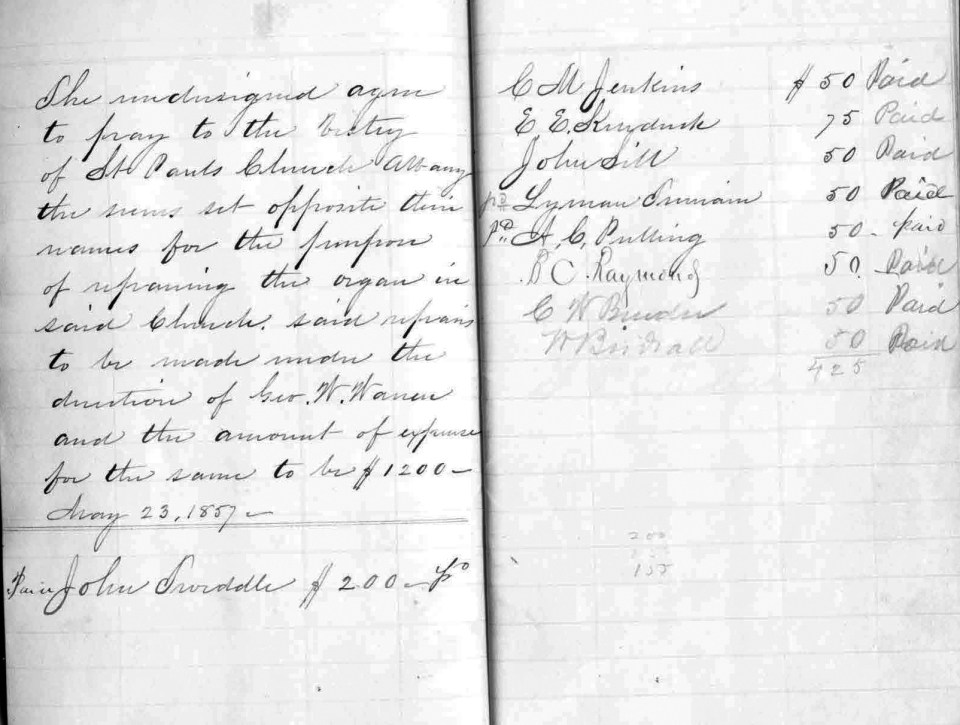 The undersigned agree
to pay to the Vestry
of St Pauls Church Albany
the sums set opposite their
names for the purpose
of repairing the organ in
said Church. said repairs
to be made under the
direction of Geo. W. Warren
and the amount of expense
for the same to be $1200—
May 23, 1857—
Paid John Tweddle $200— pd
C M Jenkins $50 Paid
E E Kendrick 75 Paid
John Sill 50 Paid
pd Lyman Tremain 50 Paid
pd A. C. Pulling 50- paid
B C. Raymond 50. Paid
C W Bender 50 Paid
W Birdsall 50 Paid
425
200
155